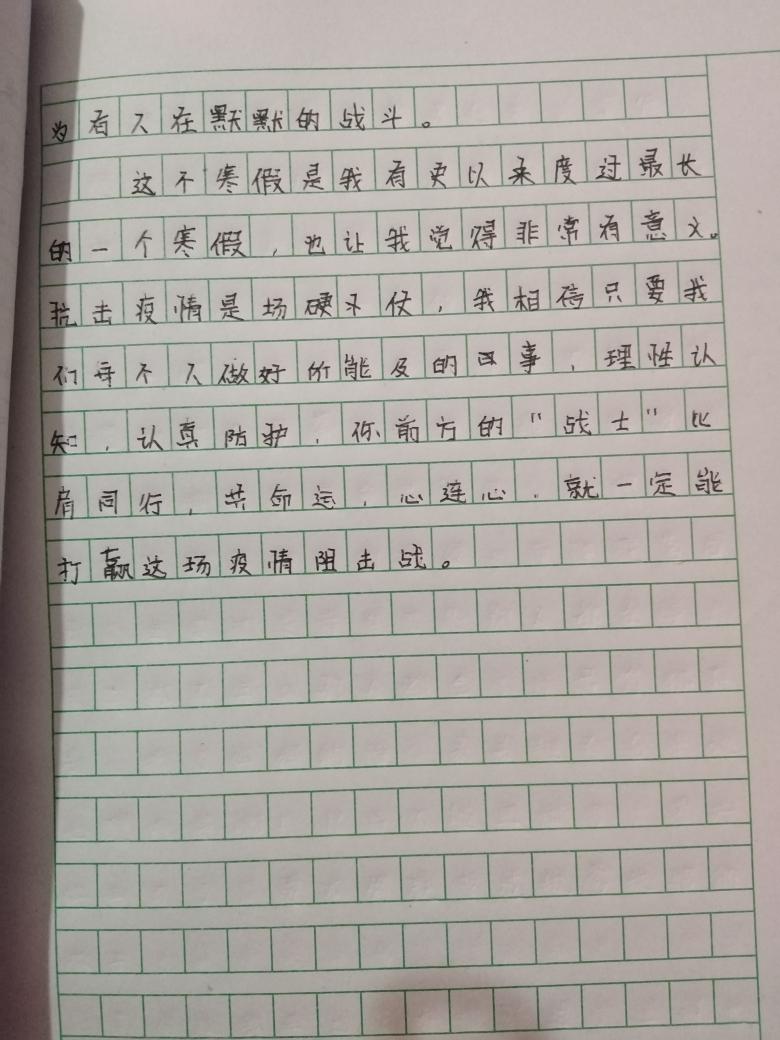 为有人在默默的战斗。
这个寒假是我有史以来度过最长
的一个寒假，也让我觉得非常有意义。
抗击疫情是场硬仗，我相信只要我
们每个人做好所能及的事，理性认
知，认真防护，你前方的“战士”比
肩同行，共命运，心连心，就一定能
打赢这场疫情阻击战。